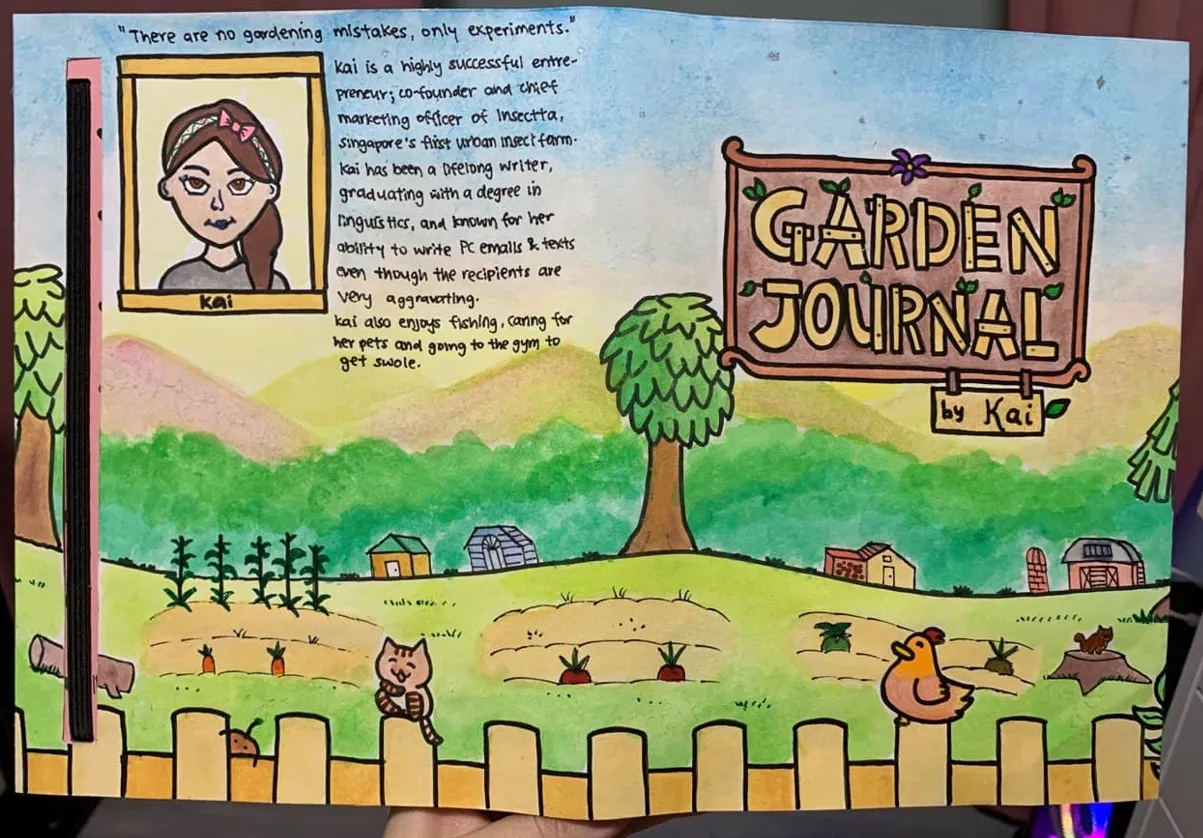 "There are no gardening mistakes, only experiments."
Kai is a highly successful entre-
preneur; co-founder and chief
marketing officer of Insectta,
singapore's first urban insect farm.
Kai has been a lifelong writer,
graduating with a degree in
linguistics, and known for her
ability to write PC emails & texts
even though the recipients are
very aggravating.
Kai also enjoys fishing, caring for
her pets and going to the gym to
get swole.
Kai
GARDEN
JOURNAL
by Kai